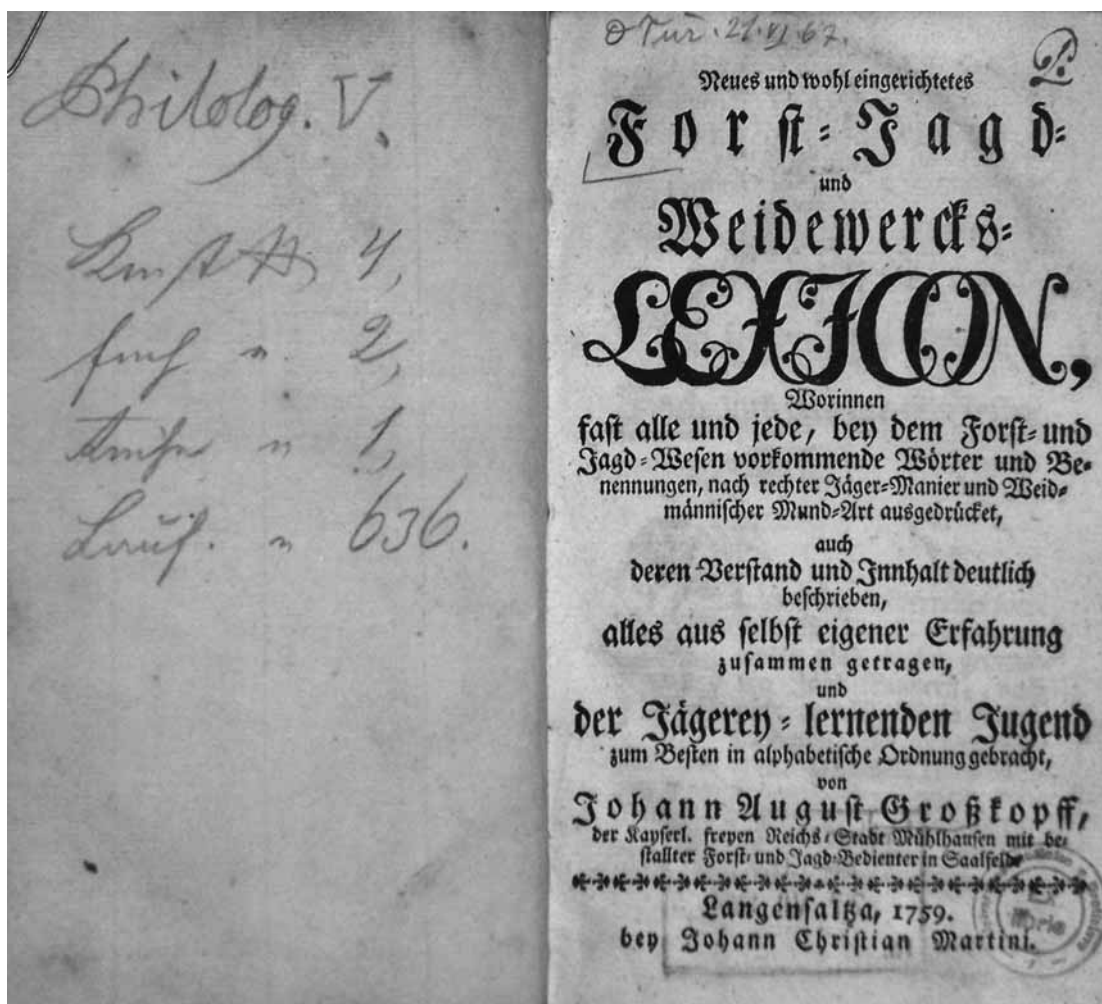 Philolog. V.
4,
2,
1,
636.
21.VI.67.
Neues und wohl eingerichtetes
Forst-Jagd-
und
Weidewercks-
LEXICON,
Worinnen
fast alle und jede, bey dem Forst- und
Jagd-Wesen vorkommende Wörter und Be-
nennungen, nach rechter Jäger-Manier und Weid-
männischer Mund-Art ausgedrücket,
auch
deren Verstand und Innhalt deutlich
beschrieben,
alles aus selbst eigener Erfahrung
zusammen getragen,
und
der Jägerey-lernenden Jugend
zum Besten in alphabetische Ordnung gebracht,
von
Johann August Großkopff,
der Kayserl. freyen Reichs-Stadt Mühlhausen mit be-
stallter Forst- und Jagd-Bedienter in Saalfeld.
Langensaltza, 1759.
bey Johann Christian Martini.